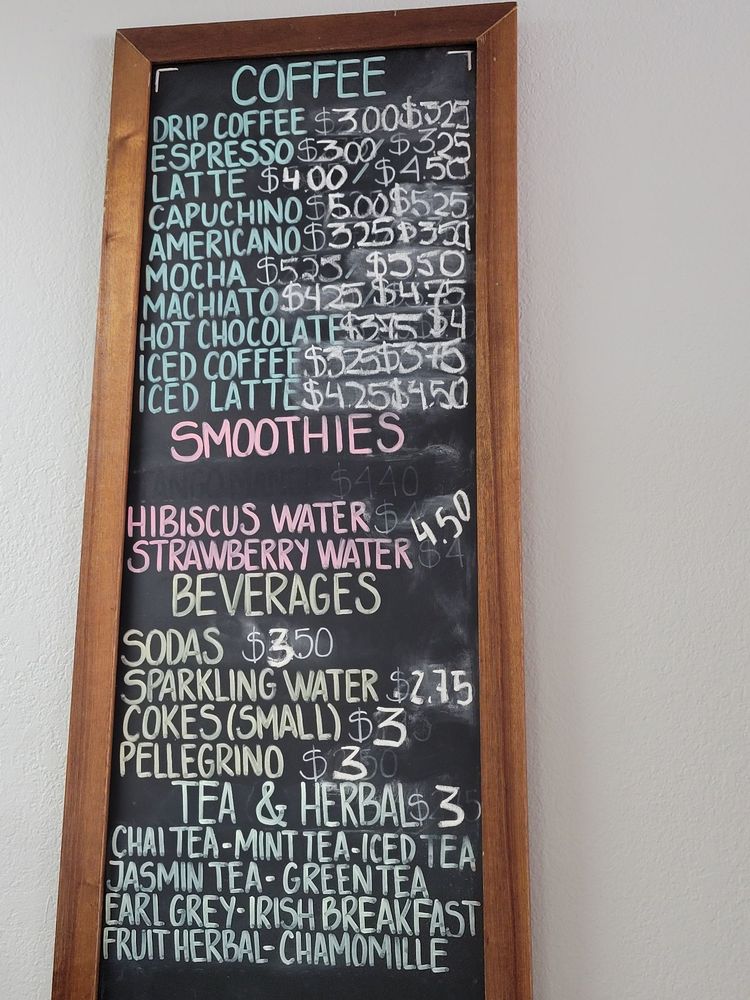 COFFEE
DRIP COFFEE $3.00 $3.25
ESPRESSO $3.00/ $3.25
LATTE $4.00/ $4.50
CAPUCHINO $5.00 $5.25
AMERICANO $3.25 $3.50
MOCHA $5.25/ $5.50
MACHIATO $4.25/ $4.75
HOT CHOCOLATE $3.75 $4
ICED COFFEE $3.25 $3.75
ICED LATTE $4.25 $4.50
SMOOTHIES
$440
HIBISCUS WATER $4.50
STRAWBERRY WATER $4
BEVERAGES
SODAS $350
SPARKLING WATER $2.75
COKES (SMALL) $3
PELLEGRINO $3
TEA & HERBAL $3
CHAI TEA-MINT TEA-ICED TEA
JASMIN TEA- GREEN TEA
EARL GREY-IRISH BREAKFAST
FRUIT HERBAL-CHAMOMILLE